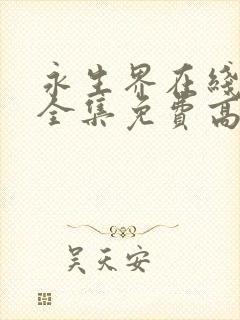 永生界在綫
全集免費高
吴天安